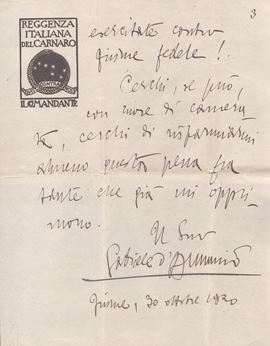 3
REGGENZA
ITALIANA
DEL CARNARO
IL COMANDANTE
esercitate contro
Fiume fedele!
Cerchi, se può,
con more di camera
ta, cerchi di risparmiarmi
almeno questa pena fra
tante che già mi oppri-
mono.
Il Suo
Gabriele d'Annunzio
Fiume, 30 ottobre 1920